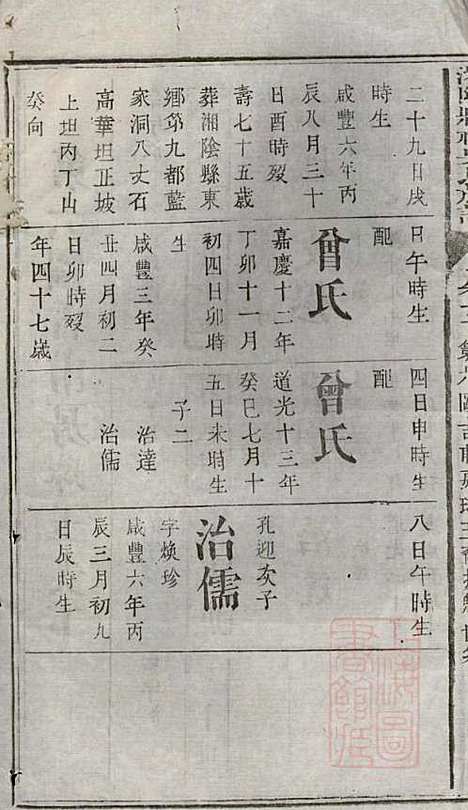 二十九日戌
時生
咸豐六年丙
辰八月三十
日酉時歿
壽七十五歲
葬湘陰縣東
鄉第九都藍
家洞八丈石
高華坦正坡
上坦丙丁山
癸向
日午時生
配
曾氏
嘉慶十二年
丁卯十一月
初四日卯時
生
咸豐三年癸
丑四月初二
日卯時歿
年四十七歲
四日申時生
配
曾氏
道光十三年
癸巳七月十
五日未時生
子二
治達
治儒
八日午時生
孔迎次子
治儒
字煥珍
咸豐六年丙
辰三月初九
日辰時生